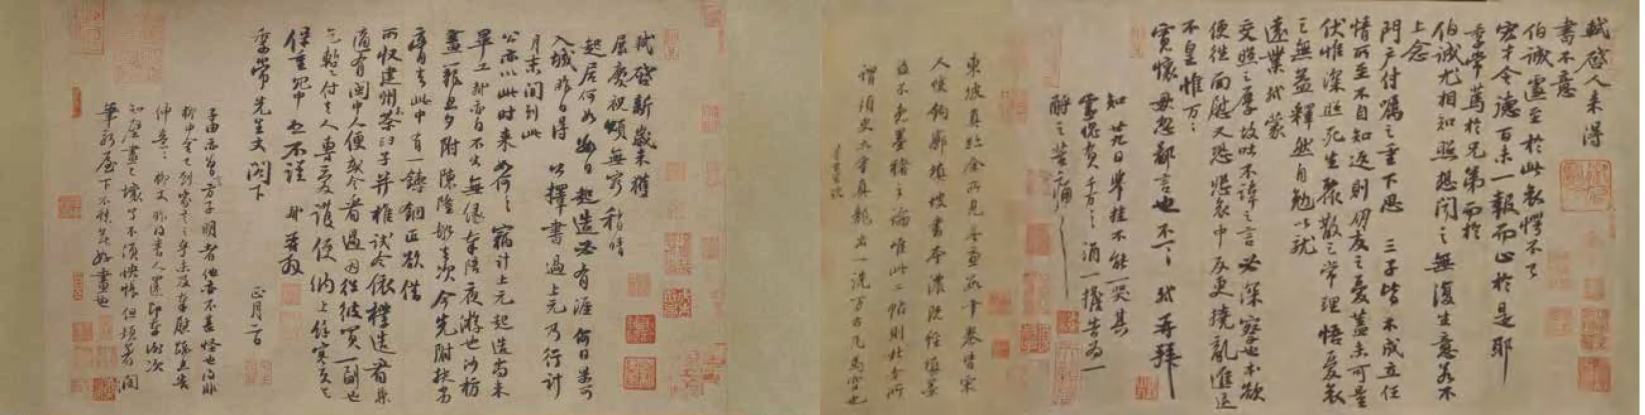 軾啓人來得
書不意
伯誠遽至於此哀愕不已
宏才令德百未一報而止於是耶
季常篤於兄弟而於
伯誠尤相知照想聞之無復生意若不
上念
門户付囑之重下思三子皆不成立任
情所至不自知返則朋友之憂蓋未可量
伏惟深照死生聚散之常理悟憂哀
之無益釋然自勉以就
遠業軾蒙
交照之厚故吐不諱之言必深察也本欲
便往面慰又恐悲哀中反更撓亂進退
不皇惟万万
寬懷毋忽鄙言也不一一軾再拜
知廿九日舉挂不能一哭其
靈愧負千万千万酒一擔告為一
酹之苦痛苦痛
東坡真跡余所見無慮數十卷皆宋
人雙鉤廓填坡書本濃既經填墨
蓋不免墨豬之論唯此二帖則杜老所
謂須臾九重真龍出一洗萬古凡馬空也
董其昌
軾啓新歲未獲
展慶祝頌無窮稍晴
起居何如數日起造必有涯何日果可
入城昨日得公擇書過上元乃行計
月末間到此
公亦以此時來如何如何竊計上元起造尚未
畢工軾亦自不出無緣奉陪夜游也沙枋
畫籠旦夕附陳隆船去次今先附扶劣
膏去此中有一鑄銅匠欲借
所收建州木茶臼子并椎試令依樣造看兼
適有閩中人便或令看過因往彼買一副也
乞暫付去人專愛護便納上餘寒更乞
保重冗中恕不謹軾再拜
季常先生丈閣下 正月二日
子由亦曾言方子明者他亦不甚怪也得非
柳中舍已到家言之乎未及奉慰疏且告
伸意伸意柳丈昨得書人還即奉謝次
知壁畫已壞了不須怏悵但頓著潤
筆新屋下不愁無好畫也